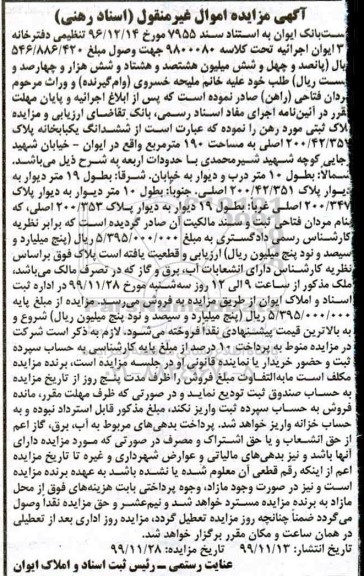 آگهی مزایده اموال غیرمنقول (اسناد رهنی)
ست‌بانک ایوان به استناد سند ۷۹۵۵ مورخ ۹۶/۱۲/۱۴ تنظیمی دفترخانه
۳ ایوان اجرائیه تحت کلاسه ۹۸۰۰۰۸۰ جهت وصول مبلغ ۵۴۶/۸۸۶/۴۲۰
یال (پانصد و چهل و شش میلیون هشتصد و هشتاد و شش هزار و چهارصد و
یست ریال) طلب خود علیه خانم ملیحه خسروی (وام‌گیرنده) و وراث مرحوم
ردان فتاحی (راهن) صادر نموده است که پس از ابلاغ اجرائیه و پایان مهلت
قرر در آئین‌نامه اجرای مفاد اسناد رسمی، بانک تقاضای ارزیابی و مزایده
لاک ثبتی مورد رهن را نموده که عبارت است از ششدانگ یکبابخانه پلاک
۲۰۰/۴۲/۳۵۲ اصلی به مساحت ۱۹۰ مترمربع واقع در ایوان - خیابان شهید
جایی کوچه شهید شیرمحمدی با حدودات اربعه به شرح ذیل می‌باشد.
شمالا: بطول ۱۰ متر درب و دیوار به خیابان. شرقا: بطول ۱۹ متر دیوار به
دیوار پلاک ۲۰۰/۴۲/۳۵۱ اصلی. جنوبا: بطول ۱۰ متر دیوار به دیوار پلاک
۲۰۰/۳۴۷ اصلی غربا: بطول ۱۹ دیوار به دیوار پلاک ۲۰۰/۳۵۳ اصلی، که
بنام مردان فتاحی ثبت و سند مالکیت آن صادر گردیده است که برابر نظریه
کارشناس رسمی دادگستری به مبلغ ۵/۳۹۵/۰۰۰/۰۰۰ ریال (پنج میلیارد و
سیصد و نود پنج میلیون ریال) ارزیابی و قطعیت یافته است پلاک فوق براساس
نظریه کارشناس دارای انشعابات آب، برق و گاز که در تصرف مالک می‌باشد،
ملک مذکور از ساعت ۹ الی ۱۲ روز سه‌شنبه مورخ ۹۹/۱۱/۲۸ در اداره ثبت
اسناد و املاک ایوان از طریق مزایده به فروش می‌رسد. مزایده از مبلغ پایه
۵/۳۹۵/۰۰۰/۰۰۰ ریال (پنج میلیارد و سیصد و نود پنج میلیون ریال) شروع و
به بالاترین قیمت پیشنهادی نقدا فروخته می‌شود، لازم به ذکر است شرکت
در مزایده منوط به پرداخت ۱۰ درصد از مبلغ پایه کارشناسی به حساب سپرده
ثبت و حضور خریدار یا نماینده قانونی او در جلسه مزایده است، برنده مزایده
مکلف است مابه‌التفاوت مبلغ فروش را ظرف مدت پنج روز از تاریخ مزایده
به حساب صندوق ثبت تودیع نماید و در صورتی که ظرف مهلت مقرر، مانده
فروش به حساب سپرده ثبت واریز نکند، مبلغ مذکور قابل استرداد نبوده و به
حساب خزانه واریز خواهد شد. پرداخت بدهی‌های مربوط به آب، برق، گاز اعم
از حق انشعاب و یا حق اشتراک و مصرف در صورتی که مورد مزایده دارای
آنها باشد و نیز بدهی‌های مالیاتی و عوارض شهرداری و غیره تا تاریخ مزایده
اعم از اینکه رقم قطعی آن معلوم شده یا نشده باشد به عهده برنده مزایده
است و نیز در صورت وجود مازاد، وجوه پرداختی بابت هزینه‌های فوق از محل
مازاد به برنده مزایده مسترد خواهد شد و نیم‌عشر و حق مزایده نقدا وصول
می‌گردد ضمنا چنانچه روز مزایده تعطیل گردد، مزایده روز اداری بعد از تعطیلی
در همان ساعت و مکان مقرر برگزار خواهد شد.
تاریخ انتشار: ۹۹/۱۱/۱۳ تاریخ مزایده: ۹۹/۱۱/۲۸
عنایت رستمی ـ رئیس ثبت اسناد و املاک ایوان